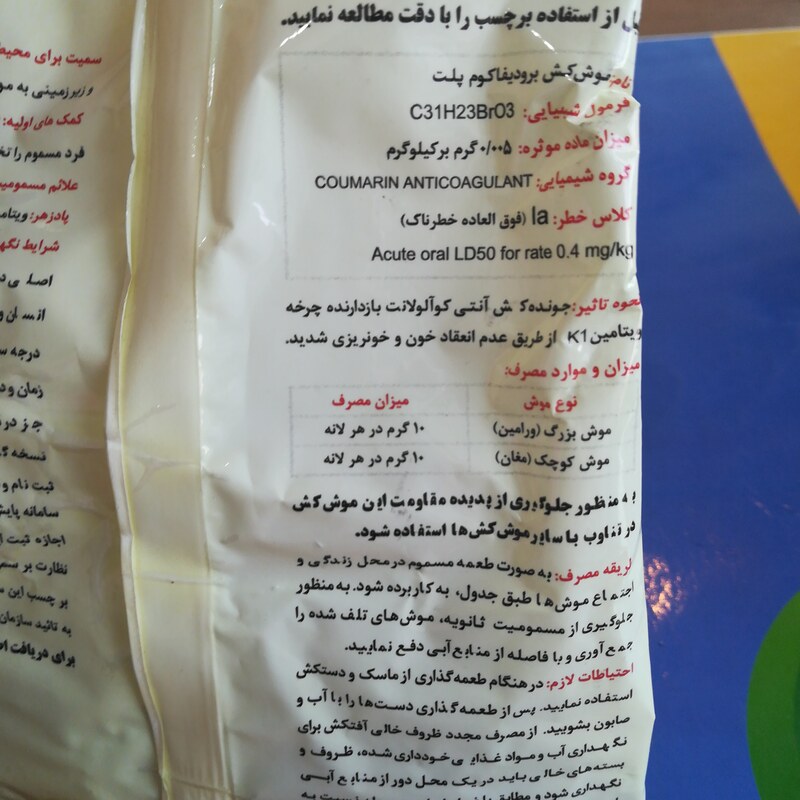 از استفاده برچسب را با دقت مطالعه نمایید.
نام: موش‌کش برودیفاکوم پلت
فرمول شیمیایی: C31H23BrO3
میزان ماده موثره: ۰/۰۰۵ گرم برکیلوگرم
گروه شیمیایی: COUMARIN ANTICOAGULANT
کلاس خطر: Ia (فوق العاده خطرناک)
Acute oral LD50 for rate 0.4 mg/kg
نحوه تاثیر: جونده‌کش آنتی کوآلولانت بازدارنده چرخه
ویتامین K1 از طریق عدم انعقاد خون و خونریزی شدید.
میزان و موارد مصرف:
نوع موش میزان مصرف
موش بزرگ (ورامین) ۱۰ گرم در هر لانه
موش کوچک (مغان) ۱۰ گرم در هر لانه
به منظور جلوگیری از پدیده مقاومت این موش کش
در تناوب با سایر موش‌کش‌ها استفاده شود.
طریقه مصرف: به صورت طعمه مسموم در محل زندگی و
اجتماع موش‌ها طبق جدول، به کار برده شود. به منظور
جلوگیری از مسمومیت ثانویه، موش‌های تلف شده را
جمع آوری و با فاصله از منابع آبی دفع نمایید.
احتیاطات لازم: در هنگام طعمه‌گذاری از ماسک و دستکش
استفاده نمایید. پس از طعمه گذاری دست‌ها را با آب و
صابون بشویید. از مصرف مجدد ظروف خالی آفتکش برای
نگهداری آب و مواد غذایی خودداری شده، ظروف و
بسته‌های خالی باید در یک محل دور از منابع آبی
نگهداری شود و مطابق
سمیت برای محیط
و زیرزمینی به
کمک های اولیه:
فرد مسموم را
علائم
پادزهر:
شرایط
اصلی
انسان و
درجه
زمان و
جز در
نسخه
ثبت نام و
سامانه
اجازه ثبت
نظارت بر
بر چسب این
به تائید سازمان
برای دریافت